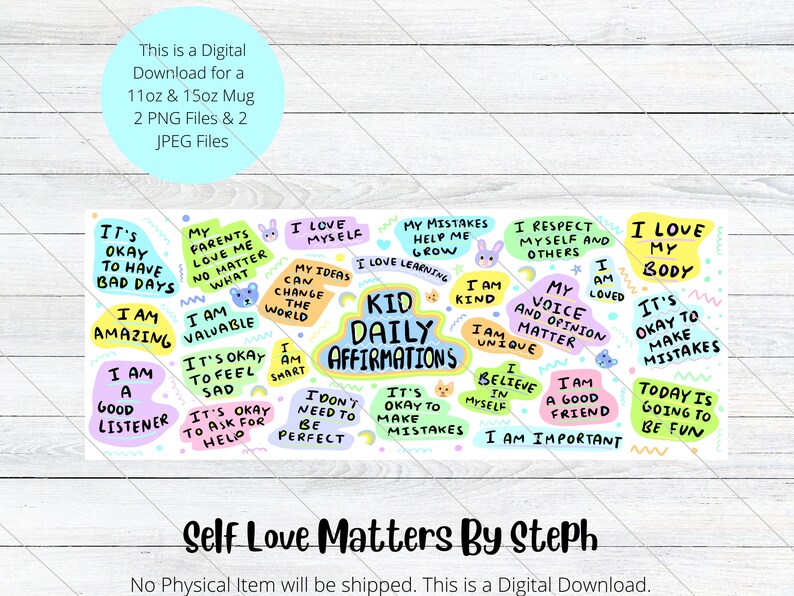 This is a Digital
Download for a
11oz & 15oz Mug
2 PNG Files & 2
JPEG Files
IT'S
OKAY
TO HAVE
BAD DAYS
MY
PARENTS
LOVE ME
NO MATTER
WHAT
I LOVE
MYSELF
MY MISTAKES
HELP ME
GROW
I RESPECT
MYSELF AND
OTHERS
I LOVE
MY
BODY
I LOVE LEARNING
MY IDEAS
CAN
CHANGE
THE
WORLD
I AM
KIND
MY
VOICE
AND OPINION
MATTER
I
AM
LOVED
I AM
AMAZING
I AM
VALUABLE
KID
DAILY
AFFIRMATIONS
I AM
UNIQUE
IT'S
OKAY TO
MAKE
MISTAKES
IT'S OKAY
TO FEEL
SAD
I
AM
SMART
I AM
A
GOOD
LISTENER
IT'S OKAY
TO ASK FOR
HELP
I DON'T
NEED TO
BE
PERFECT
IT'S
OKAY TO
MAKE
MISTAKES
I
BELIEVE
IN
MYSELF
I AM
A GOOD
FRIEND
TODAY IS
GOING TO
BE FUN
I AM IMPORTANT
Self Love Matters By Steph
No Physical Item will be shipped. This is a Digital Download.